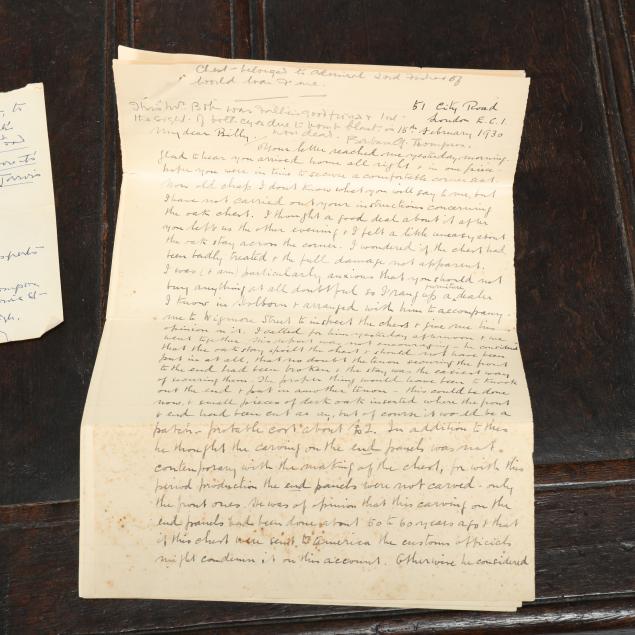 Chest - belonged to Admiral Lord Fisher of
World War I fame.
51 City Road
London E.C.1.
the sight of both eyes due to bomb blast on 15th February 1930
now dead. Barbara G. Thompson.
My dear Billy,
Your letter reached me yesterday morning.
Glad to hear you arrived home all right & in one piece.
hope you were in time to secure a comfortable corner seat
Now old chap I don't know what you will say to me, but
I have not carried out your instructions concerning
the oak chest. I thought a good deal about it after
you left us the other evening & I felt a little uneasy about
the oak stay across the corner. I wondered if the chest had
been badly treated & the full damage not apparent.
I was (& am) particularly anxious that you should not
buy anything at all doubtful so I rang up a furniture dealer
I know in Holborn & arranged with him to accompany
me to Wigmore Street to inspect the chest & give me his
opinion on it. I called for him yesterday afternoon & we
went together. His report was not encouraging - he considered
that the oak stay spoilt the chest & should not have been
put in at all, that no doubt the tenon securing the front
to the end had been broken & the stay was the easiest way
of securing them. The proper thing would have been to knock
out the end & put in another tenon - this could be done
now, & small pieces of dark oak inserted where the front
& end had been cut away, but of course it would be a
patch - probable cost about £2. In addition to this
he thought the carving on the end panels was not
contemporary with the making of the chest, for with this
period production the end panels were not carved - only
the front ones. He was of opinion that this carving on the
end panels had been done about 50 to 60 years ago & that
if this chest were sent to America the customs officials
might condemn it on this account. Otherwise he considered
to
xperts
mpson